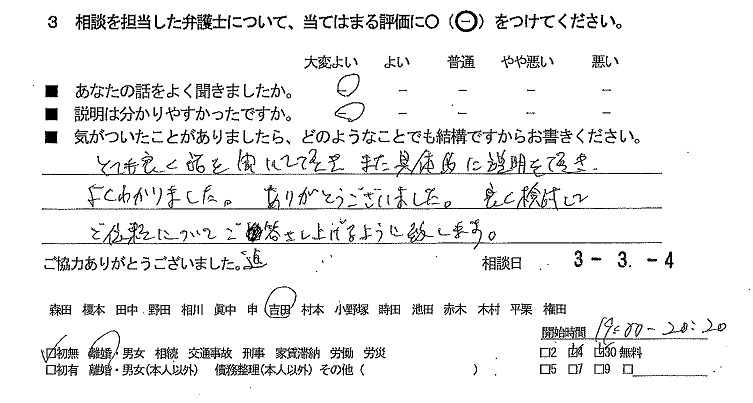 3 相談を担当した弁護士について、当てはまる評価に○(⊖)をつけてください。
大変よい よい 普通 やや悪い 悪い
■ あなたの話をよく聞きましたか。 － － － －
■ 説明は分かりやすかったですか。 － － － － －
■ 気がついたことがありましたら、どのようなことでも結構ですからお書きください。
とても良く話を聞いて頂き また具体的に説明を頂き
よくわかりました。 ありがとうございました。 良く検討して
ご依頼について ご 答し上げるように致します。
ご協力ありがとうございました。 相談日 3－3.－4
森田 榎本 田中 野田 相川 眞中 申 吉田 村本 小野塚 時田 池田 赤木 木村 平栗 権田
開始時間 19:00－20:20
□初無 離婚・男女 相続 交通事故 刑事 家賃滞納 労働 労災 □2 □4 □30 無料
□初有 離婚・男女(本人以外) 債務整理(本人以外) その他( ) □5 □7 □9 □